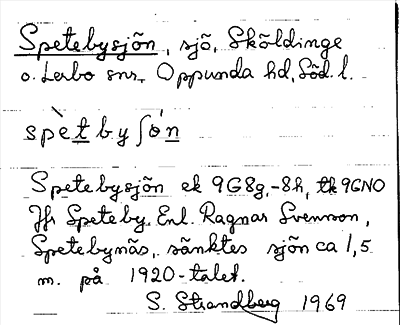 Spetebysjön, sjö, Sköldinge
o. Lerbo snr, Oppunda hd, Söd. l.
spètbyʃón
Spetebysjön ek 9G8g,-8h, tk 9GNO
Jfr Speteby. Enl. Ragnar Svensson,
Spetebynäs, sänktes sjön ca 1,5
m. på 1920-talet.
S. Strandberg 1969